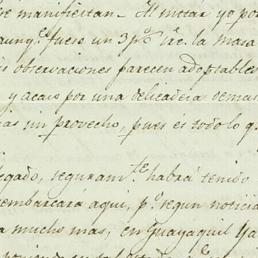 manifiestan — Al mirar yo po
aunq.e fuese un 3 p.% &c. la masa
s observaciones parecen adoptables
y acaso por una delicadeza demas
as mi provecho, pues es todo lo q
egado, seguram.te habrá tenido
embarcará aqui, p.r segun noticia
a mucho mas, en Guayaquil ya